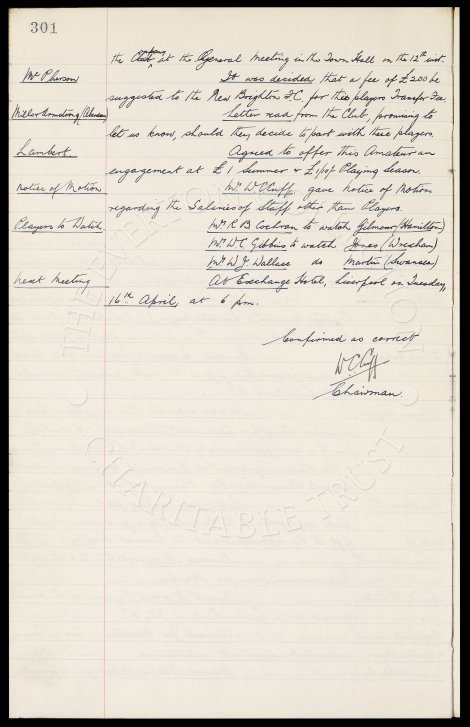 301
the Company at the General Meeting in the Town Hall on the 12th inst.
McPherson
It was decided that a fee of £200 be
suggested to the New Brighton F.C. for this players Transfer Fee
Miller & Armstrong, Aberdeen
Letter read from the Club, promising to
let us know, should they decide to part with these players.
Lambert.
Agreed to offer this Amateur an
engagement at £1 Summer & £1/10/ Playing season.
Notice of Motion
Mr. W.C. Cuff gave notice of Motion
regarding the Salaries of Staff other than Players.
Players to Watch
Mr. R B Cochran to watch Gilmour (Hamilton)
Mr. W C Gibbins to watch Jones (Wrexham)
Mr. W J Wallace do Martin (Swansea)
Next Meeting
At Exchange Hotel, Liverpool on Tuesday,
16th April, at 6 pm.
Confirmed as correct
W C Cuff
Chairman.
THE EVERTON COLLECTION
CHARITABLE TRUST